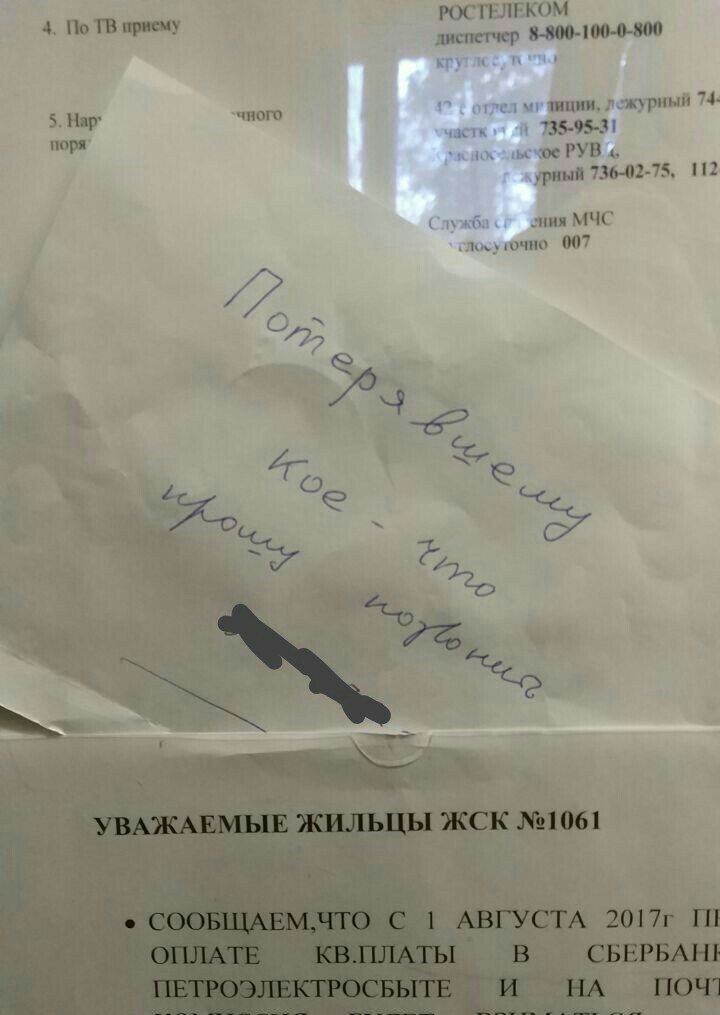 4. По ТВ приему
РОСТЕЛЕКОМ
диспетчер 8-800-100-0-800
круглосуточно
5. Нар нного
поря
42-е отдел милиции, дежурный 74-
участковый 735-95-31
Красносельское РУВД,
дежурный 736-02-75, 112-
Служба спасения МЧС
круглосуточно 007
Потерявшему
кое-что
прошу позвонить
УВАЖАЕМЫЕ ЖИЛЬЦЫ ЖСК №1061
• СООБЩАЕМ,ЧТО С 1 АВГУСТА 2017г
ОПЛАТЕ КВ.ПЛАТЫ В СБЕРБАНК
ПЕТРОЭЛЕКТРОСБЫТЕ И НА ПОЧТ